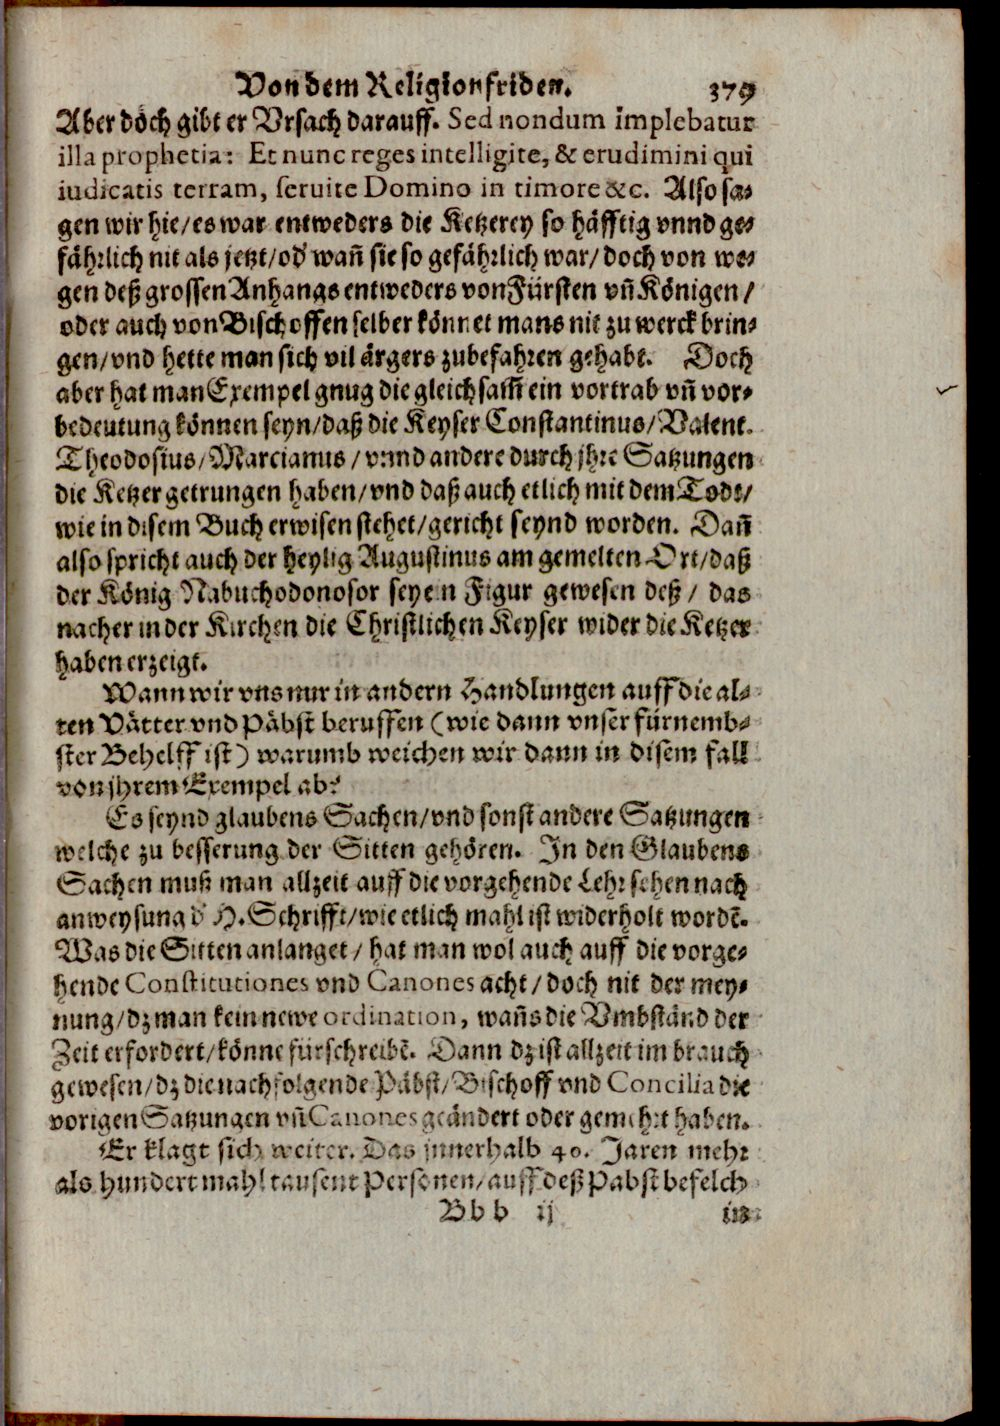 Von dem Religionfriden. 379
Aber doch gibt er Vrsach darauff. Sed nondum implebatur
illa prophetia: Et nunc reges intelligite, & erudimini qui
iudicatis terram, seruite Domino in timore &c. Also sa⸗
gen wir hie/es war entweders die Ketzerey so häfftig vnnd ge⸗
fährlich nit als jetzt/od' wañ sie so gefährlich war/ doch von we⸗
gen deß grossen Anhangs entweders von Fürsten vñ Königen /
oder auch von Bischoffen selber könnet mans nit zu werck brin⸗
gen/vnd hette man sich vil ärgers zubefahren gehabt. Doch
aber hat man Exempel gnug die gleichsam̃ ein vortrab vñ vor⸗
bedeutung können seyn/daß die Keyser Constantinus/Valent.
Theodosius/Marcianus / vnnd andere durch jhre Satzungen
die Ketzer getrungen haben/vnd daß auch etlich mit dem Todt/
wie in disem Buch erwisen stehet/gericht seynd worden. Dañ
also spricht auch der heylig Augustinus am gemelten Ort/daß
der König Nabuchodonosor seye in Figur gewesen deß / das
nacher in der Kirchen die Christlichen Keyser wider die Ketzer
haben erzeigt.
Wann wir vns nur in andern Handlungen auff die al⸗
ten Vätter vnd Päbst beruffen (wie dann vnser fürnemb⸗
ster Behelff ist) warumb weichen wir dann in disem fall
von jhrem Exempel ab?
Es seynd glaubens Sachen/vnd sonst andere Satzungen
welche zu besserung der Sitten gehören. In den Glaubens
Sachen muß man allzeit auff die vorgehende Lehr sehen nach
anweysung d' H. Schrifft/wie etlich mahl ist widerholt wordẽ.
Was die Sitten anlanget / hat man wol auch auff die vorge⸗
hende Constitutiones vnd Canones acht / doch nit der mey⸗
nung/dz man kein newe ordination, wañs die Vmbständ der
Zeit erfordert/könne fürschreibẽ. Dann dz ist allzeit im brauch
gewesen/dz die nachfolgende Päbst/Bischoff vnd Concilia die
vorigen Satzungen vñ Canones geändert oder gemehrt haben.
Er klagt sich weiter. Das innerhalb 40. Jaren mehr
als hundert mahl tausent Personen/auff deß Pabst befelch
Bbb ij in